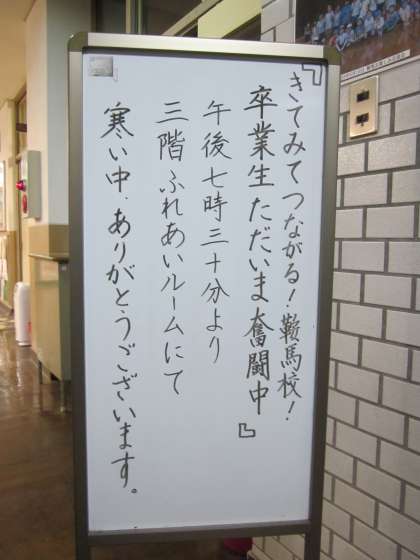 『きてみてつながる！鞍馬校！
卒業生ただいま奮闘中』
午後七時三十分より
三階ふれあいルームにて
寒い中、ありがとうございます。